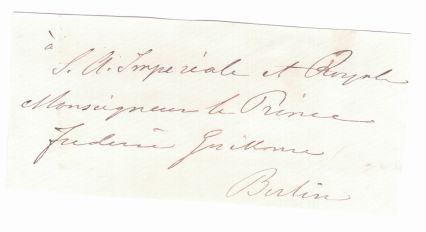 à
S. A. Impériale et Royale
Monseigneur le Prince
Frederic Guillaume
Berlin